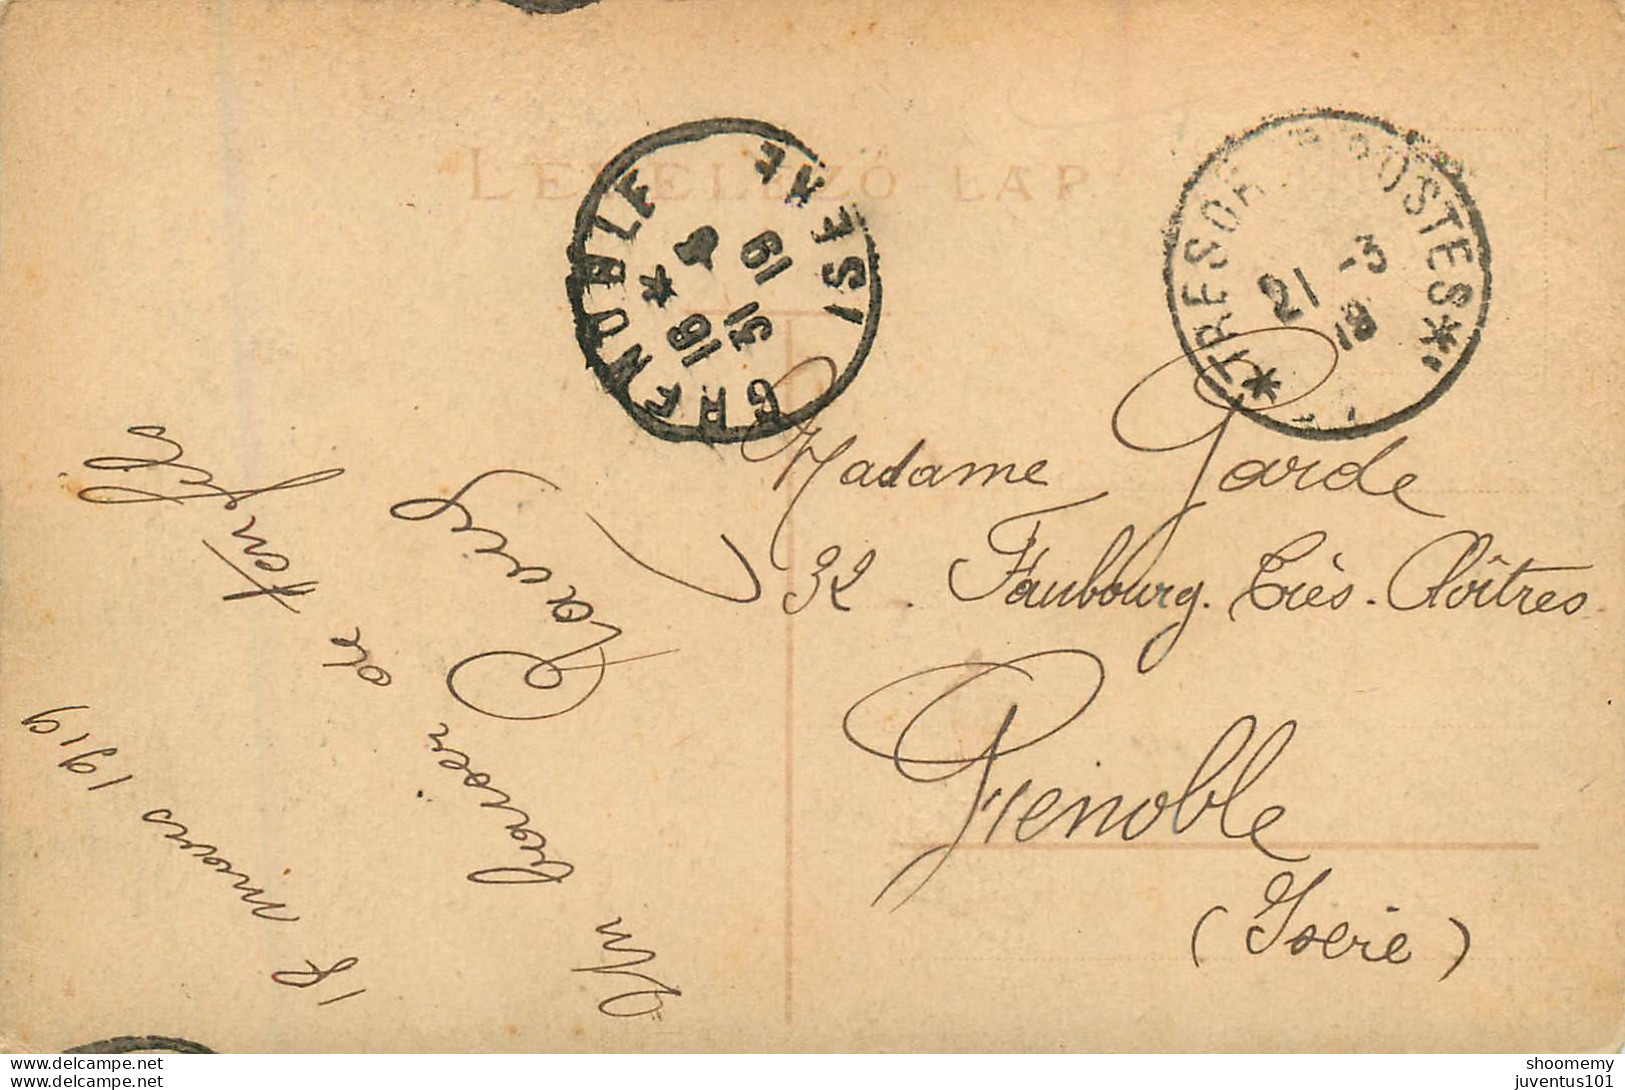 LEVELEZŐ LAP
GRENOBLE * ISERE
19
* TRESOR ET POSTES *
21 -3
19
Madame Garde
32. Faubourg. Très-Cloîtres
Grenoble
(Isère)
18 mars 1919
Un baiser de ton fils
www.delcampe.net
shoomemy
juventus101